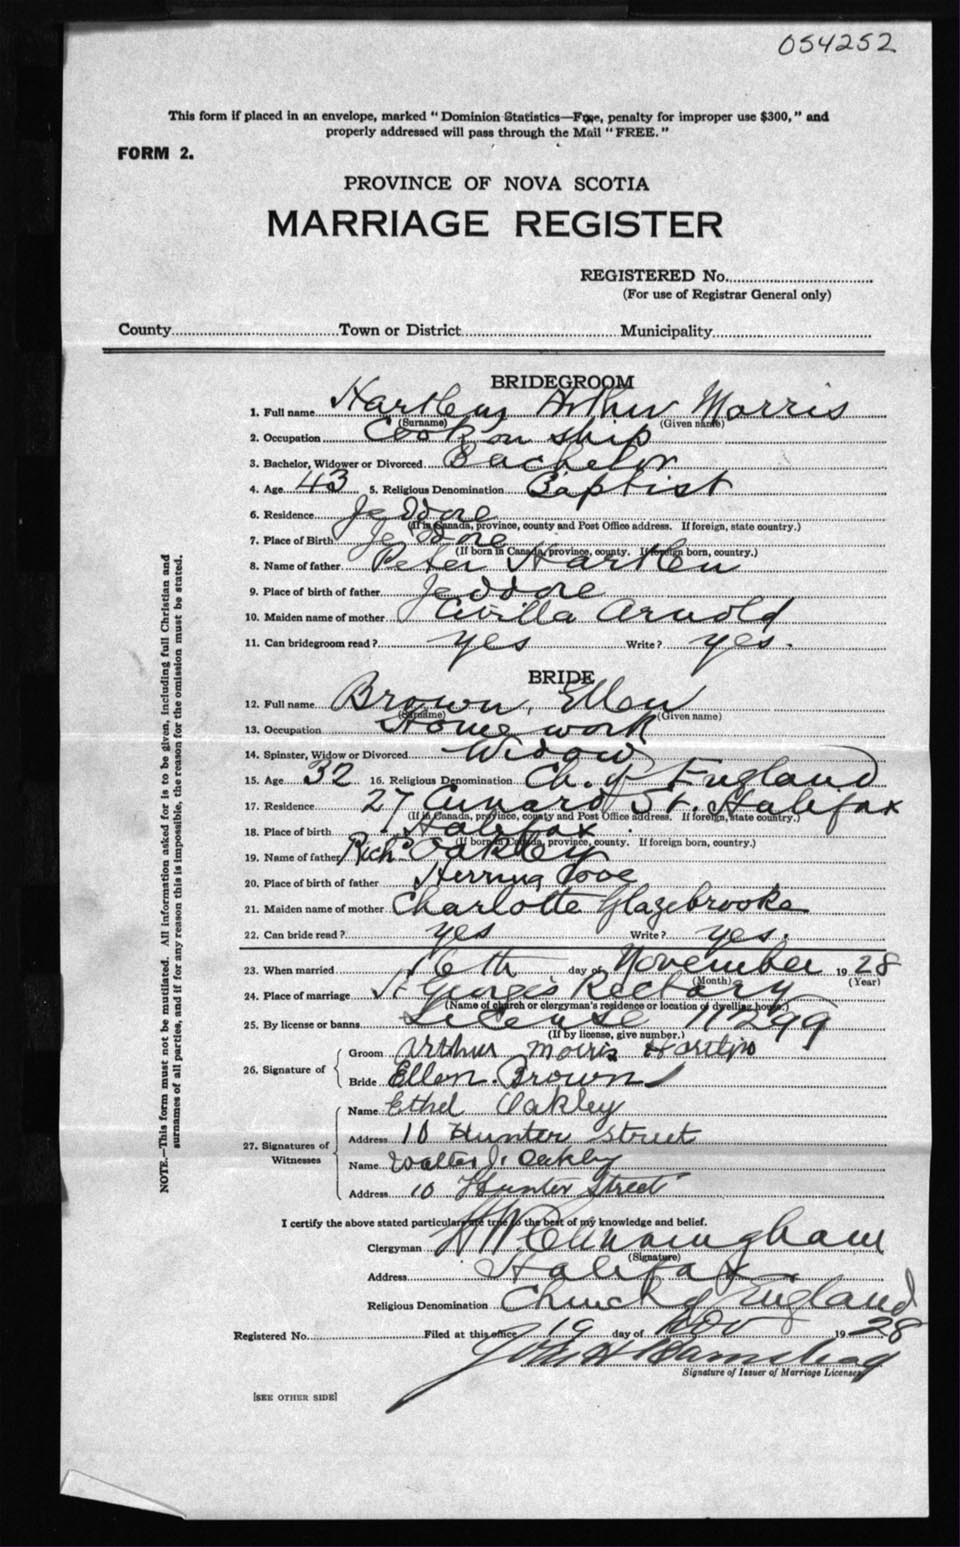 054252
This form if placed in an envelope, marked "Dominion Statistics—Free, penalty for improper use $300," and
properly addressed will pass through the Mail "FREE."
FORM 2.
PROVINCE OF NOVA SCOTIA
MARRIAGE REGISTER
REGISTERED No.
(For use of Registrar General only)
County Town or District Municipality
BRIDEGROOM
1. Full name Hartlen, Arthur Morris
(Surname) (Given name)
2. Occupation Cook on ship
3. Bachelor, Widower or Divorced Bachelor
4. Age 43 5. Religious Denomination Baptist
6. Residence Jeddore
(If in Canada, province, county and Post Office address. If foreign, state country.)
7. Place of Birth Jeddore
(If born in Canada, province, county. If foreign born, country.)
8. Name of father Peter Hartlen
9. Place of birth of father Jeddore
10. Maiden name of mother Civilla Arnold
11. Can bridegroom read? yes Write? yes.
BRIDE
12. Full name Brown, Ellen
(Surname) (Given name)
13. Occupation Home work
14. Spinster, Widow or Divorced Widow
15. Age 32 16. Religious Denomination Ch. of England
17. Residence 27 Cunard St. Halifax
(If in Canada, province, county and Post Office address. If foreign, state country.)
18. Place of birth Halifax
(If born in Canada, province, county. If foreign born, country.)
19. Name of father Richd Oakley
20. Place of birth of father Herring Cove
21. Maiden name of mother Charlotte Glazebrooke
22. Can bride read? yes Write? yes.
23. When married 16th day of November 1928
(Month) (Year)
24. Place of marriage St George's Rectory
(Name of church or clergyman's residence or location of dwelling house.)
25. By license or banns License 11299
(If by license, give number.)
26. Signature of
Groom Arthur Morris Hartlen
Bride Ellen Brown
27. Signatures of Witnesses
Name Ethel Oakley
Address 10 Hunter Street
Name Walter J. Oakley
Address 10 Hunter Street
I certify the above stated particulars are true to the best of my knowledge and belief.
Clergyman H W Cunningham
(Signature)
Address Halifax
Religious Denomination Church of England
Registered No. Filed at this office 19 day of Nov 1928
John H
Signature of Issuer of Marriage Licenses
[SEE OTHER SIDE]
NOTE.—This form must not be mutilated. All information asked for is to be given, including full Christian and
surnames of all parties, and if for any reason this is impossible, the reason for the omission must be stated.